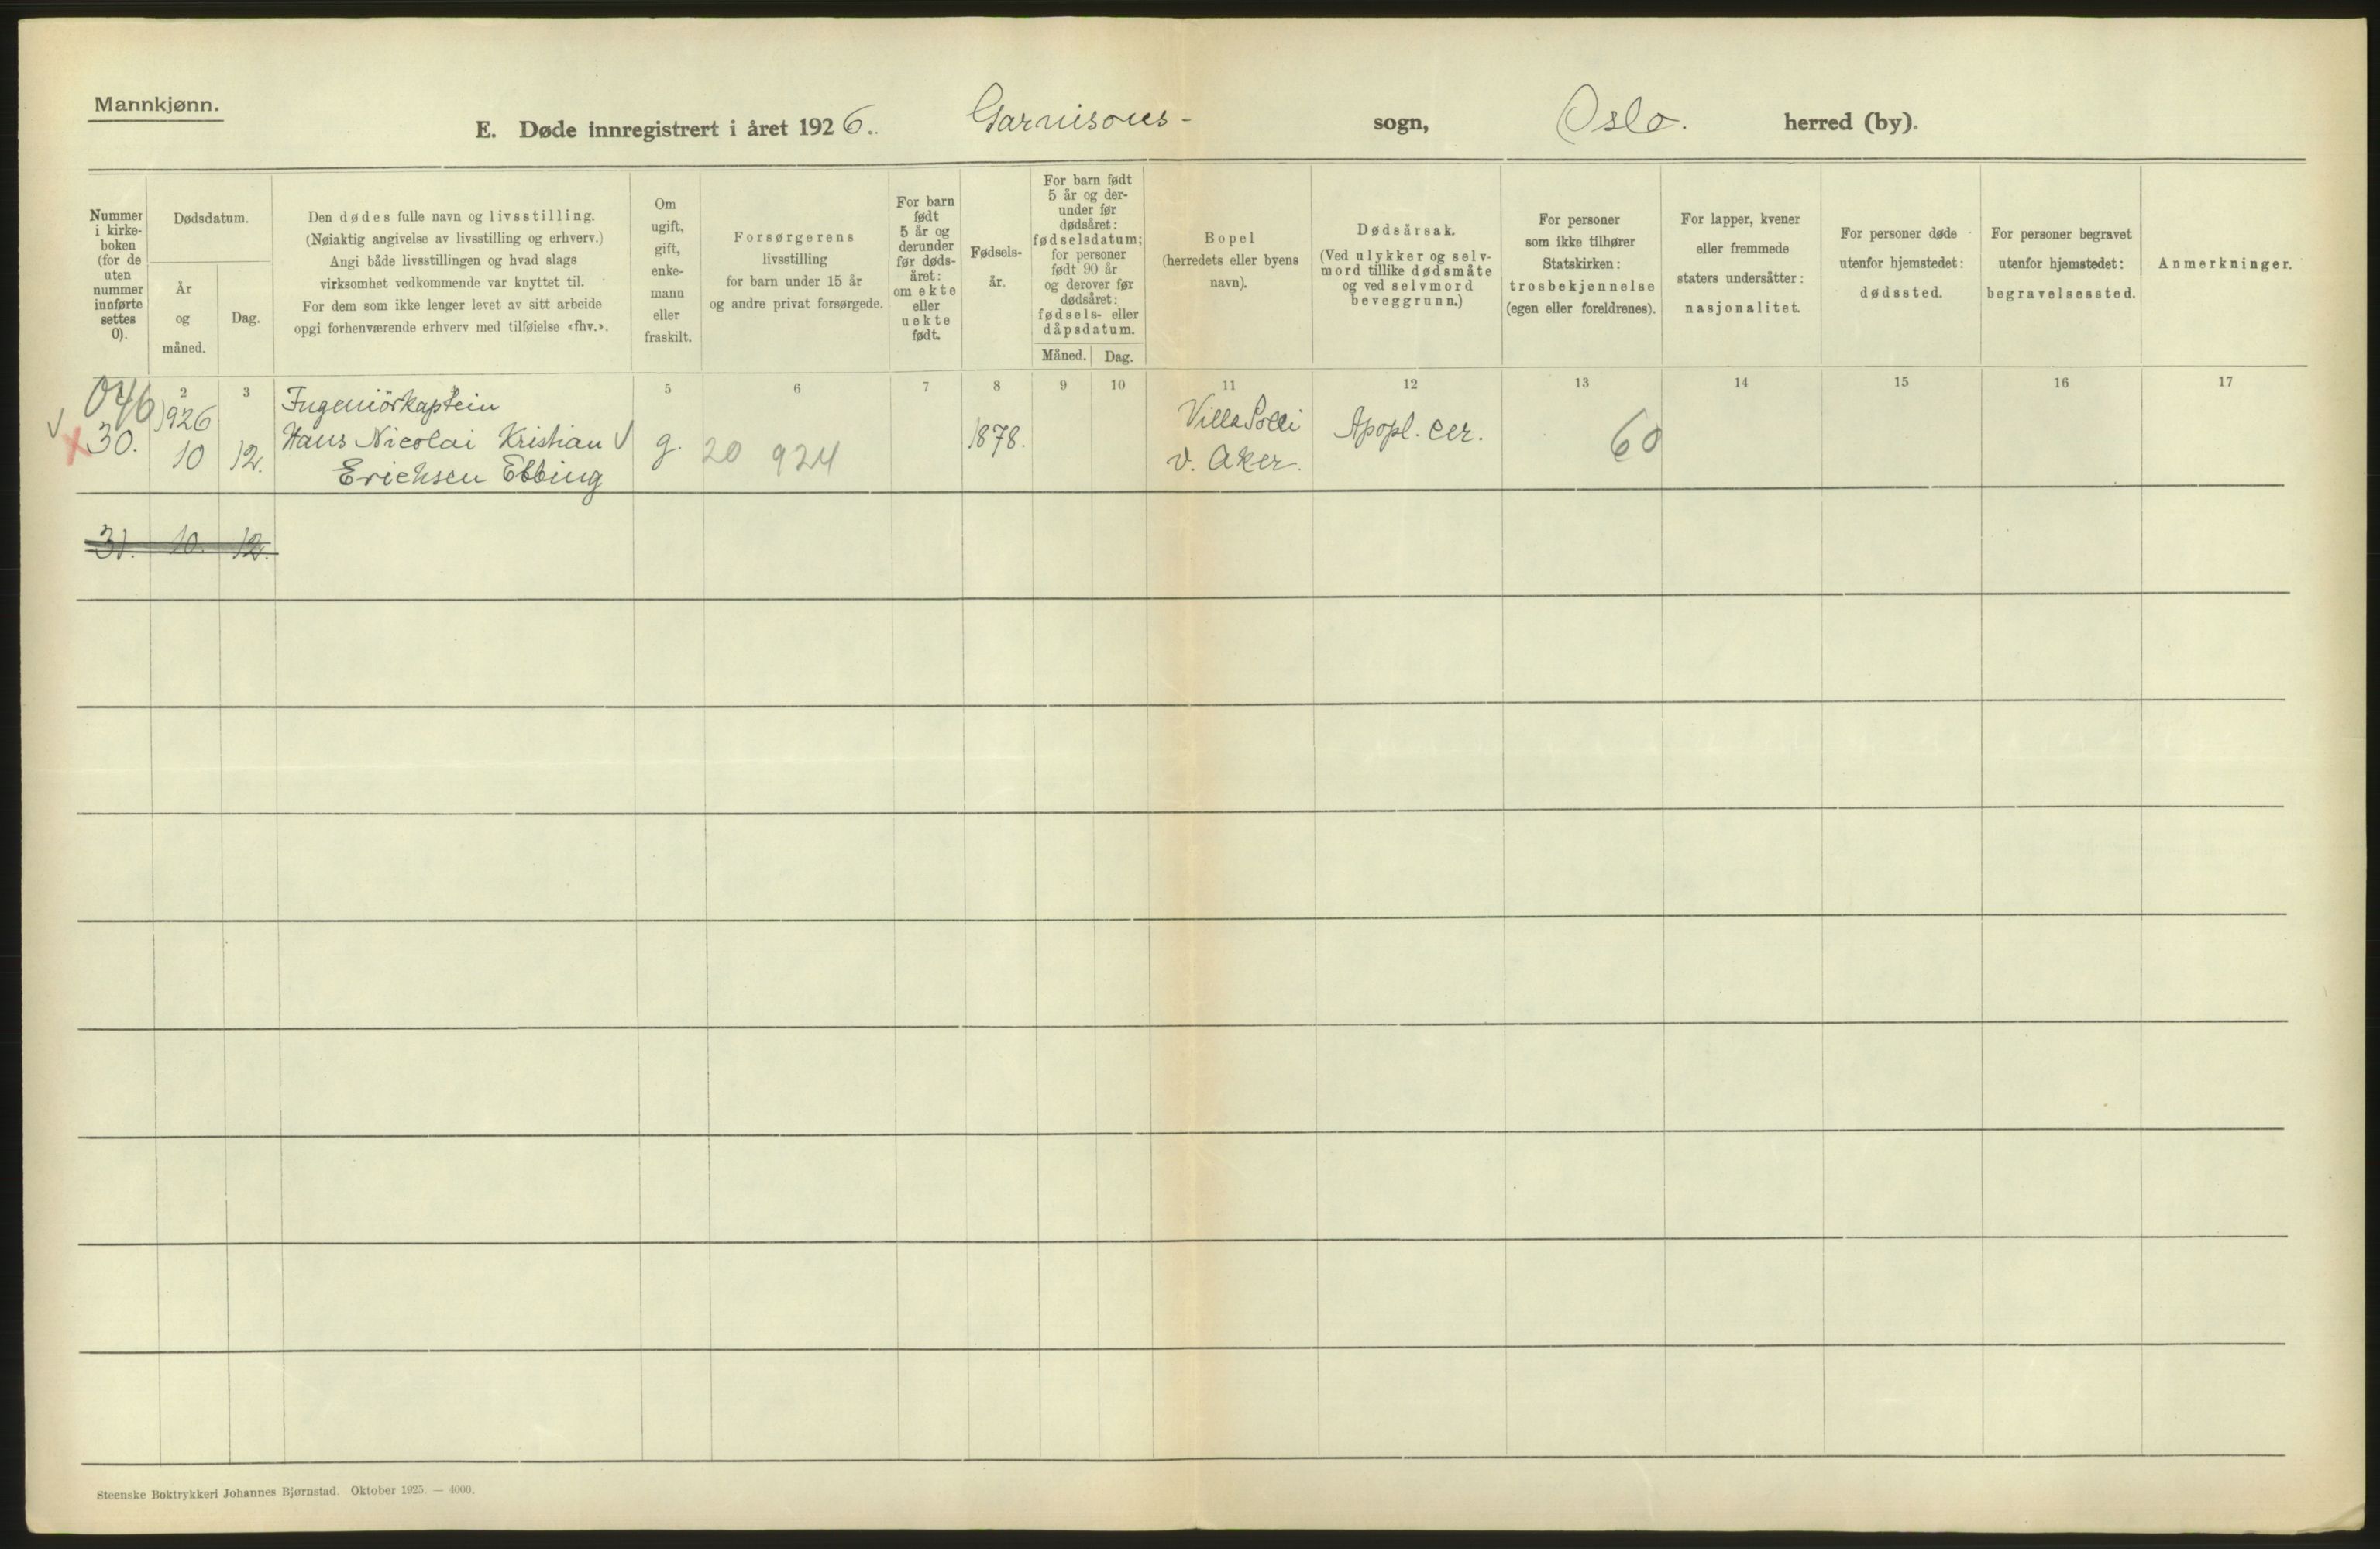 Mannkjønn.
E. Døde innregistrert i året 1926. Garnisons- sogn, Oslo. herred (by).
Nummer
i kirke-
boken
(for de
uten
nummer
innførte
settes
0).
Dødsdatum.
År
og
måned.
Dag.
Den dødes fulle navn og livsstilling.
(Nøiaktig angivelse av livsstilling og erhverv.)
Angi både livsstillingen og hvad slags
virksomhet vedkommende var knyttet til.
For dem som ikke lenger levet av sitt arbeide
opgi forhenværende erhverv med tilføielse «fhv.».
Om
ugift,
gift,
enke-
mann
eller
fraskilt.
Forsørgerens
livsstilling
for barn under 15 år
og andre privat forsørgede.
For barn
født
5 år og
derunder
før døds-
året:
om ekte
eller
uekte
født.
Fødsels-
år.
For barn født
5 år og der-
under før
dødsåret:
fødselsdatum;
for personer
født 90 år
og derover før
dødsåret:
fødsels- eller
dåpsdatum.
Måned. Dag.
Bopel
(herredets eller byens
navn).
Dødsårsak.
(Ved ulykker og selv-
mord tillike dødsmåte
og ved selvmord
beveggrunn.)
For personer
som ikke tilhører
Statskirken:
trosbekjennelse
(egen eller foreldrenes).
For lapper, kvener
eller fremmede
staters undersåtter:
nasjonalitet.
For personer døde
utenfor hjemstedet:
dødssted.
For personer begravet
utenfor hjemstedet:
begravelsessted.
Anmerkninger.
2 3 5 6 7 8 9 10 11 12 13 14 15 16 17
046
30.
1926
10
12.
Ingeniörkaptein
Hans Nicolai Kristian
Erichsen Ebbing
g.
20 924
1878.
Villa Solli
v. Aker.
Apopl. cer.
60
31. 10. 12.
Steenske Boktrykkeri Johannes Bjørnstad. Oktober 1925. — 4000.